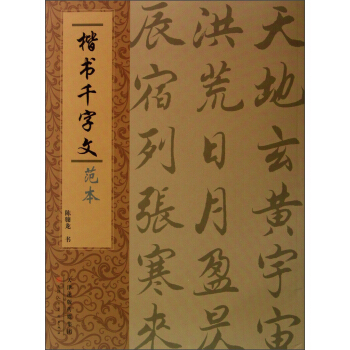 天地玄黄宇宙
洪荒日月盈昃
辰宿列張寒來
楷书千字文
范本
书